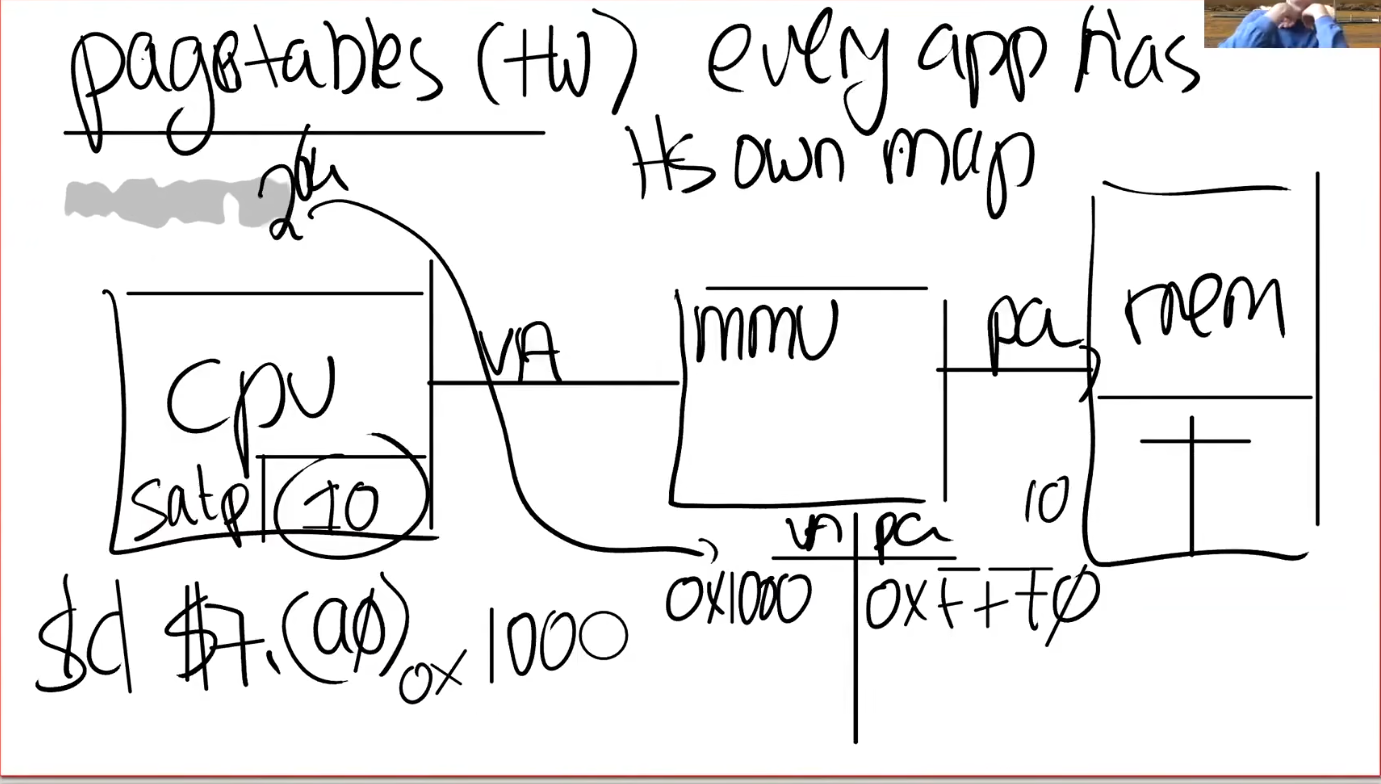 pagetables (HW) every app has
its own map
2^64
CPU
VA
MMU
pa
mem
satp 10
10
VA pa
0x1000 0xFFF0
sd $7, (a0)
0x1000